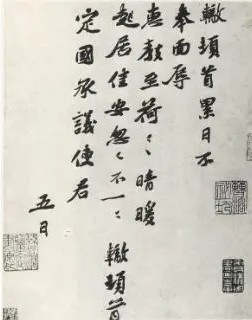 轍頓首累日不
奉面辱
惠教至荷〻晴暖
起居佳安忽〻不一〻 轍頓首
定國承議使君
五日